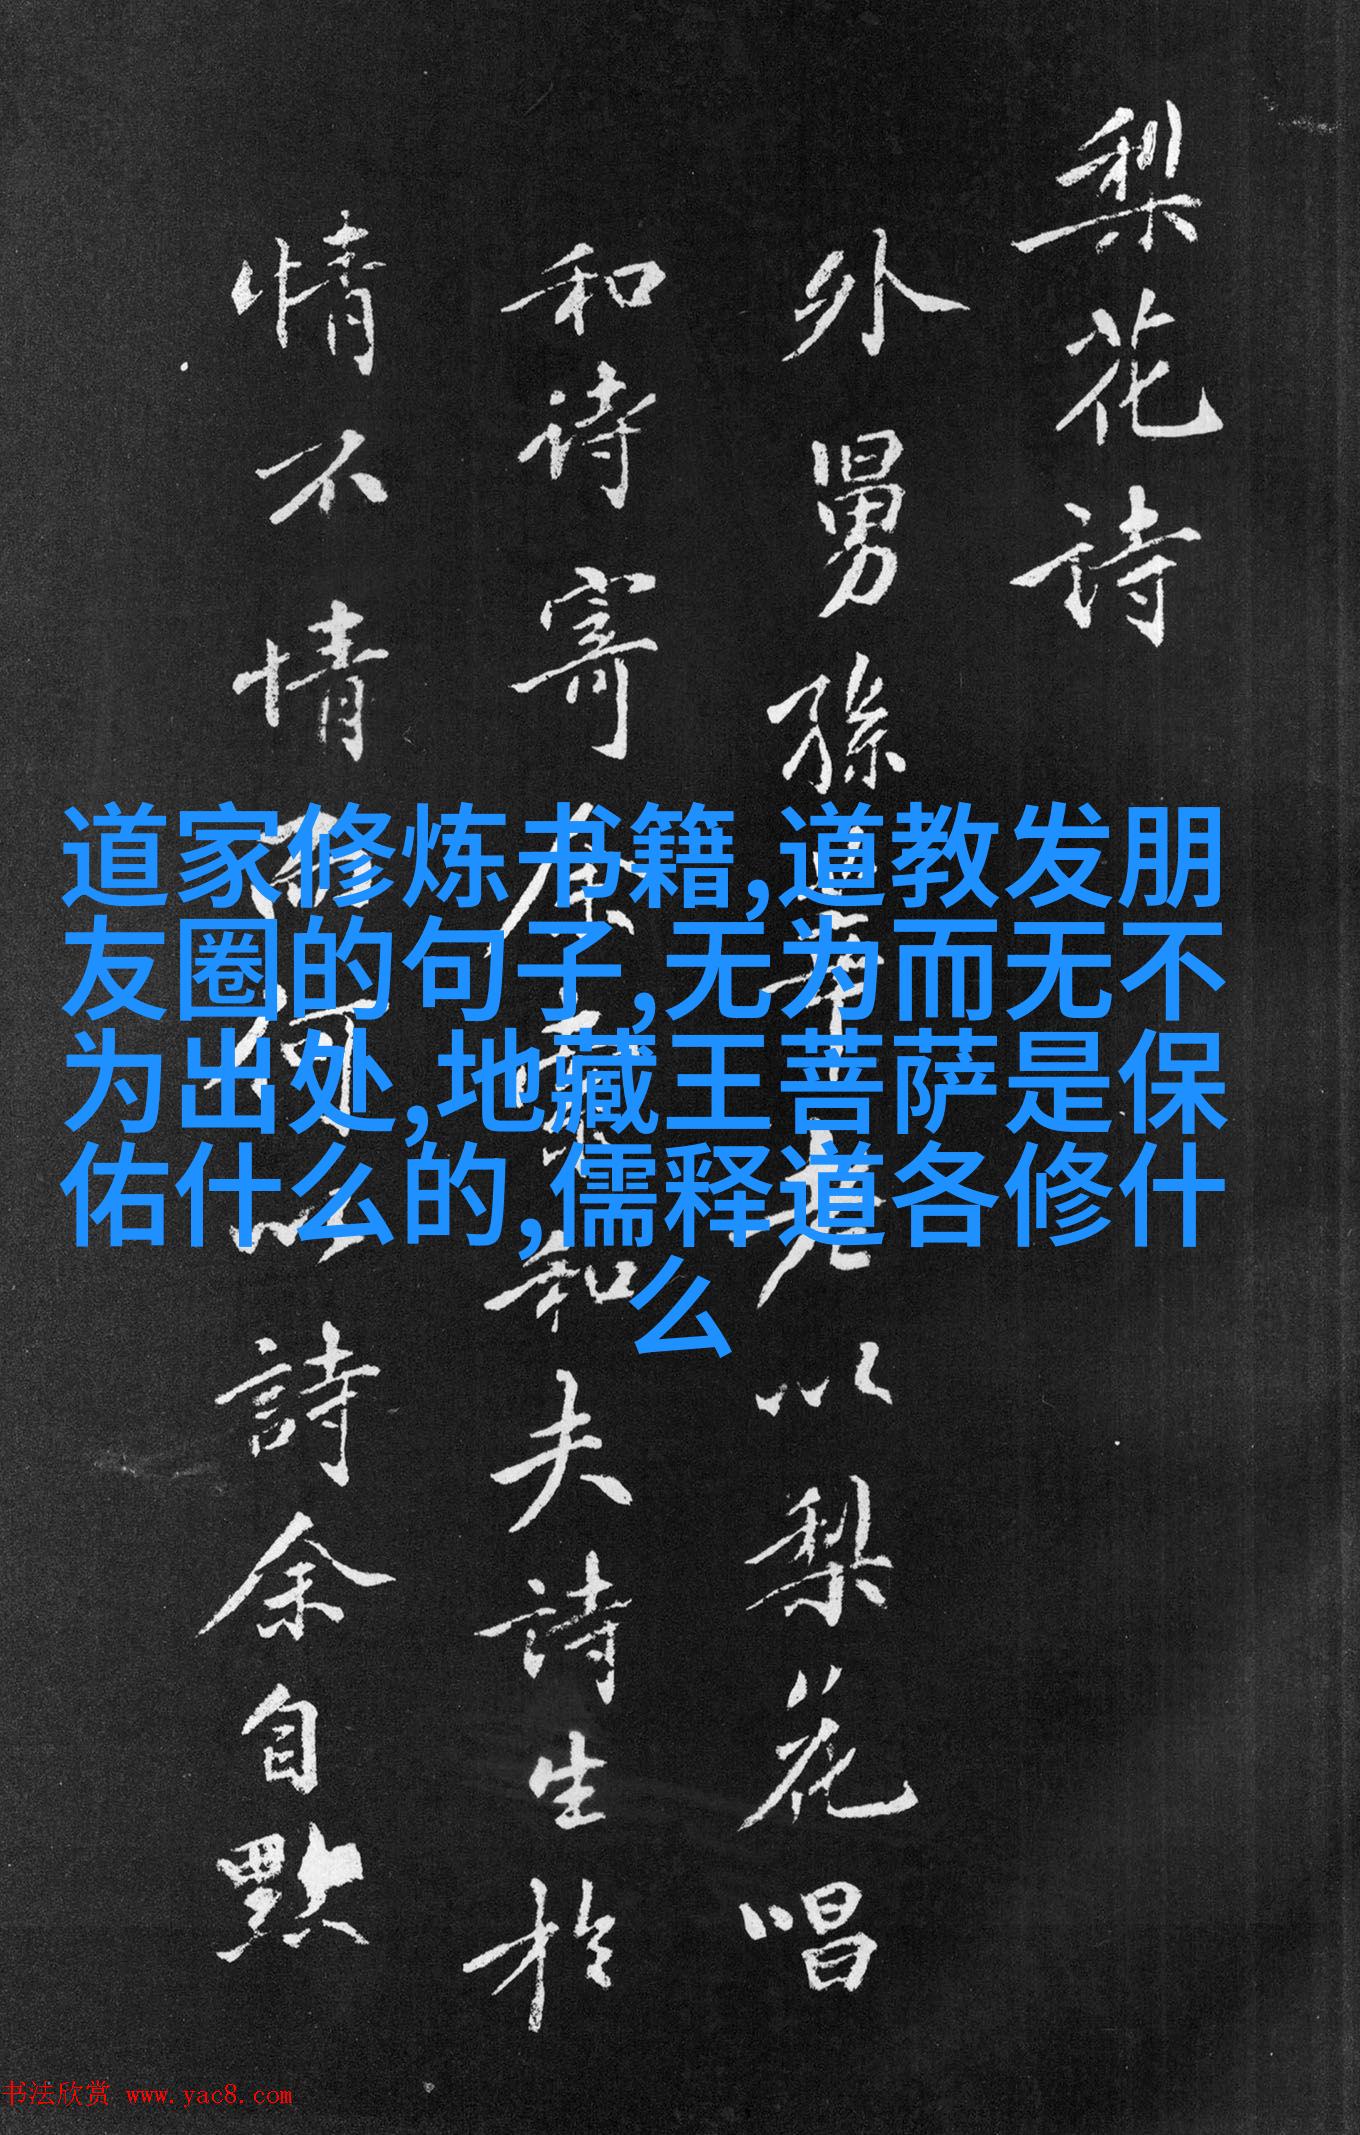 梨花詩
外舅孫莘老以梨花唱
和诗寄余索和夫詩生於
情不情而何以詩余自默
道家修炼书籍,道教发朋
友圈的句子,无为而无不
为出处,地藏王菩萨是保
佑什么的,儒释道各修什
么
书法欣赏 www.yac8.com